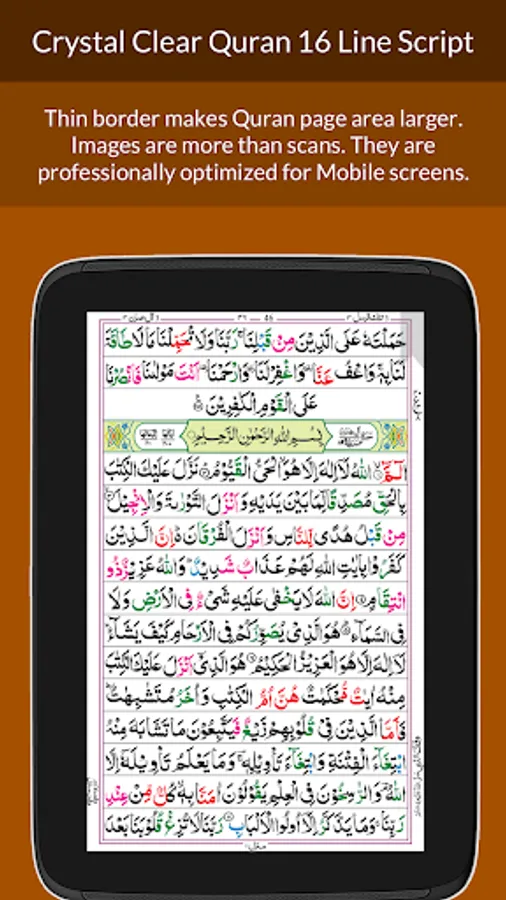 Crystal Clear Quran 16 Line Script
Thin border makes Quran page area larger.
Images are more than scans. They are
professionally optimized for Mobile screens.
حَمَلْتَهٗ عَلَى الَّذِيْنَ مِنْ قَبْلِنَا ۚ رَبَّنَا وَلَا تُحَمِّلْنَا مَا لَا طَاقَةَ
لَنَا بِهٖ ۚ وَاعْفُ عَنَّا ۥ وَاغْفِرْ لَنَا ۥ وَارْحَمْنَا ۥ اَنْتَ مَوْلٰىنَا فَانْصُرْنَا
عَلَى الْقَوْمِ الْكٰفِرِيْنَ
بِسْمِ اللهِ الرَّحْمٰنِ الرَّحِيْمِ
الٓمّٓ اللهُ لَاۤ اِلٰهَ اِلَّا هُوَ الْحَيُّ الْقَيُّوْمُ نَزَّلَ عَلَيْكَ الْكِتٰبَ
بِالْحَقِّ مُصَدِّقًا لِّمَا بَيْنَ يَدَيْهِ وَاَنْزَلَ التَّوْرٰىةَ وَالْاِنْجِيْلَ
مِنْ قَبْلُ هُدًى لِّلنَّاسِ وَاَنْزَلَ الْفُرْقَانَ ۥ اِنَّ الَّذِيْنَ
كَفَرُوْا بِاٰيٰتِ اللهِ لَهُمْ عَذَابٌ شَدِيْدٌ ۥ وَاللهُ عَزِيْزٌ ذُو
انْتِقَامٍ اِنَّ اللهَ لَا يَخْفٰى عَلَيْهِ شَيْءٌ فِي الْاَرْضِ وَلَا
فِي السَّمَآءِ هُوَ الَّذِيْ يُصَوِّرُكُمْ فِي الْاَرْحَامِ كَيْفَ يَشَآءُ
لَاۤ اِلٰهَ اِلَّا هُوَ الْعَزِيْزُ الْحَكِيْمُ هُوَ الَّذِيْۤ اَنْزَلَ عَلَيْكَ الْكِتٰبَ
مِنْهُ اٰيٰتٌ مُّحْكَمٰتٌ هُنَّ اُمُّ الْكِتٰبِ وَاُخَرُ مُتَشٰبِهٰتٌ
فَاَمَّا الَّذِيْنَ فِيْ قُلُوْبِهِمْ زَيْغٌ فَيَتَّبِعُوْنَ مَا تَشَابَهَ مِنْهُ
ابْتِغَآءَ الْفِتْنَةِ وَابْتِغَآءَ تَاْوِيْلِهٖ ۚ وَمَا يَعْلَمُ تَاْوِيْلَهٗۤ اِلَّا
اللهُ ۘ وَالرّٰسِخُوْنَ فِي الْعِلْمِ يَقُوْلُوْنَ اٰمَنَّا بِهٖ كُلٌّ مِّنْ عِنْدِ
رَبِّنَا ۚ وَمَا يَذَّكَّرُ اِلَّاۤ اُولُوا الْاَلْبَابِ رَبَّنَا لَا تُزِغْ قُلُوْبَنَا بَعْدَ